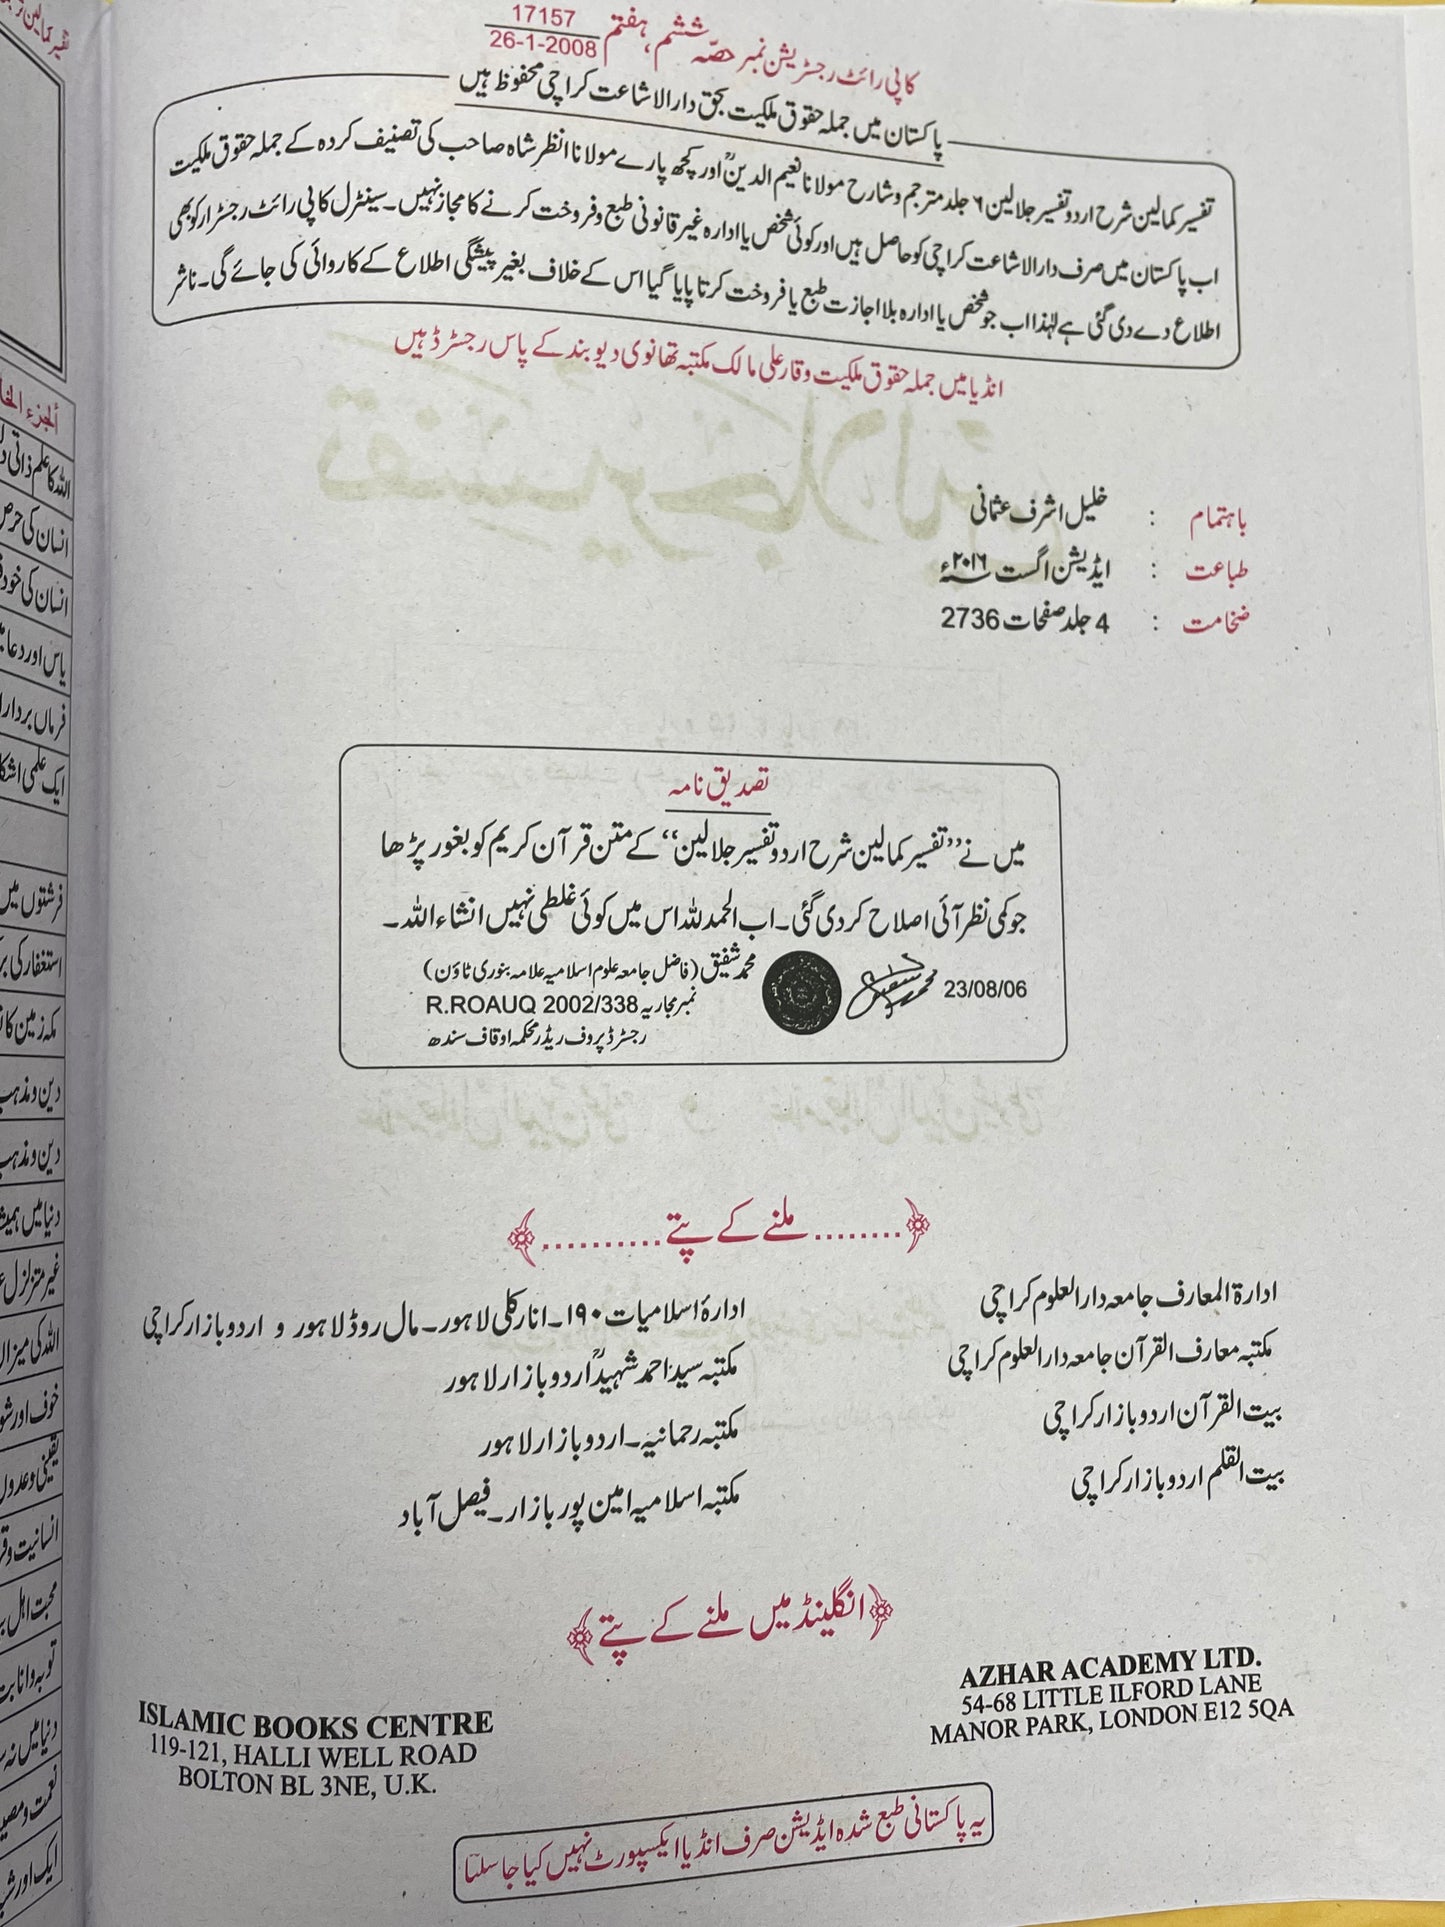 کاپی رائٹ رجسٹریشن نمبر حصّہ ششم، ہفتم 17157
26-1-2008
پاکستان میں جملہ حقوق ملکیت بحق دارالاشاعت کراچی محفوظ ہیں
تفسیر کمالین شرح اردو تفسیر جلالین ۶ جلد مترجم و شارح مولانا نعیم الدینؒ اور کچھ پارے مولانا انظر شاہ صاحب کی تصنیف کردہ کے جملہ حقوق ملکیت
اب پاکستان میں صرف دارالاشاعت کراچی کو حاصل ہیں اور کوئی شخص یا ادارہ غیر قانونی طبع و فروخت کرنے کا مجاز نہیں۔ سینٹرل کاپی رائٹ رجسٹرار کو بھی
اطلاع دے دی گئی ہے لہٰذا اب جو شخص یا ادارہ بلا اجازت طبع یا فروخت کرتا پایا گیا اس کے خلاف بغیر پیشگی اطلاع کے کاروائی کی جائے گی۔ ناشر
انڈیا میں جملہ حقوق ملکیت وقار علی مالک مکتبہ تھانوی دیوبند کے پاس رجسٹرڈ ہیں
باہتمام : خلیل اشرف عثمانی
طباعت : ایڈیشن اگست ۲۰۱۶ء
ضخامت : 4 جلد صفحات 2736
تصدیق نامہ
میں نے ”تفسیر کمالین شرح اردو تفسیر جلالین“ کے متن قرآن کریم کو بغور پڑھا
جو کمی نظر آئی اصلاح کر دی گئی۔ اب الحمد للہ اس میں کوئی غلطی نہیں انشاء اللہ۔
23/08/06 محمد شفیق (فاضل جامعہ علوم اسلامیہ علامہ بنوری ٹاؤن)
نمبر مجاریہ R.ROAUQ 2002/338
رجسٹرڈ پروف ریڈر محکمہ اوقاف سندھ
﴿........ملنے کے پتے..........﴾
ادارۃ المعارف جامعہ دارالعلوم کراچی
مکتبہ معارف القرآن جامعہ دارالعلوم کراچی
بیت القرآن اردو بازار کراچی
بیت القلم اردو بازار کراچی
ادارۂ اسلامیات ۱۹۰۔ انار کلی لاہور۔ مال روڈ لاہور و اردو بازار کراچی
مکتبہ سید احمد شہیدؒ اردو بازار لاہور
مکتبہ رحمانیہ۔ اردو بازار لاہور
مکتبہ اسلامیہ امین پور بازار۔ فیصل آباد
﴿انگلینڈ میں ملنے کے پتے﴾
ISLAMIC BOOKS CENTRE
119-121, HALLI WELL ROAD
BOLTON BL 3NE, U.K.
AZHAR ACADEMY LTD.
54-68 LITTLE ILFORD LANE
MANOR PARK, LONDON E12 5QA
یہ پاکستانی طبع شدہ ایڈیشن صرف انڈیا ایکسپورٹ نہیں کیا جا سکتا
الجزء
اللہ کا علم ذاتی
انسان کی حرص
انسان کی
یاس اور دعا
ایک علمی
فرشتوں میں
استغفار کی
مکہ زمین کا
دین و مذہب
دین و مذہب
دنیا میں ہمیشہ
غیر متزلزل
اللہ کی میزان
خوف اور
یقینی وعدوں
انسانیت و
محبت اہل
توبہ و انابت
دنیا میں نہ
نعمت و
ایک اور